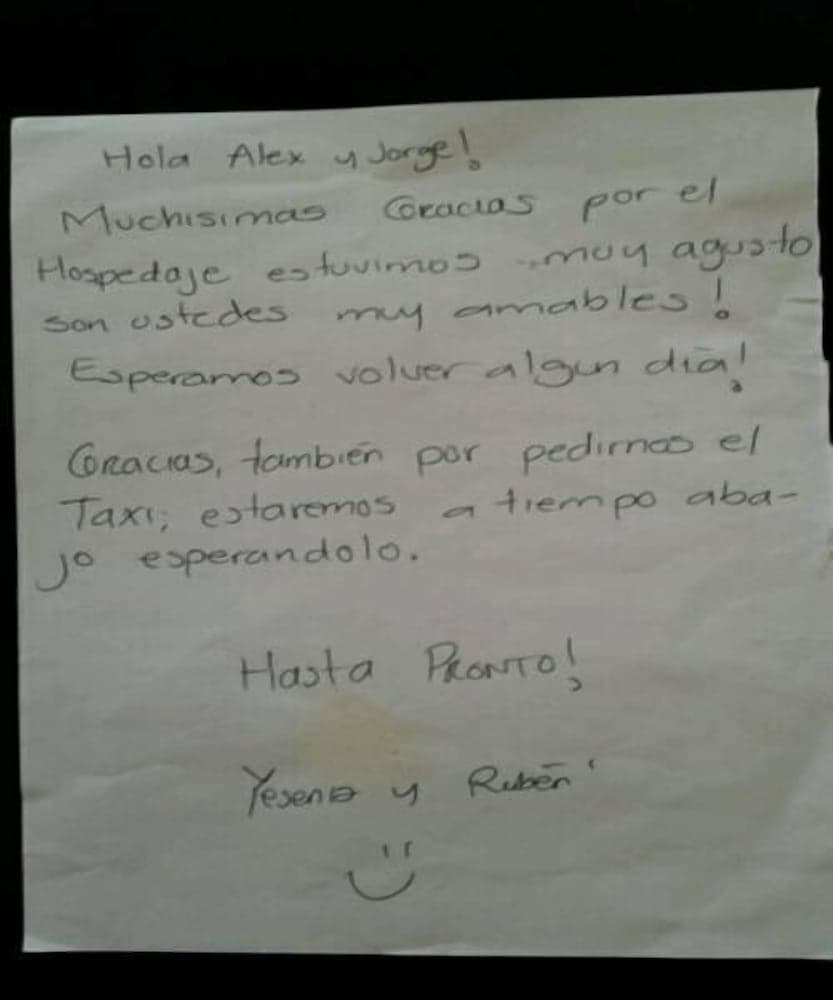 Hola Alex y Jorge!
Muchisimas Gracias por el
Hospedaje estuvimos muy agusto
son ustedes muy amables!
Esperamos volver algun día!
Gracias, también por pedirnos el
Taxi, estaremos a tiempo aba-
jo esperandolo.
Hasta PRONTO!
Yesenia y Rubén